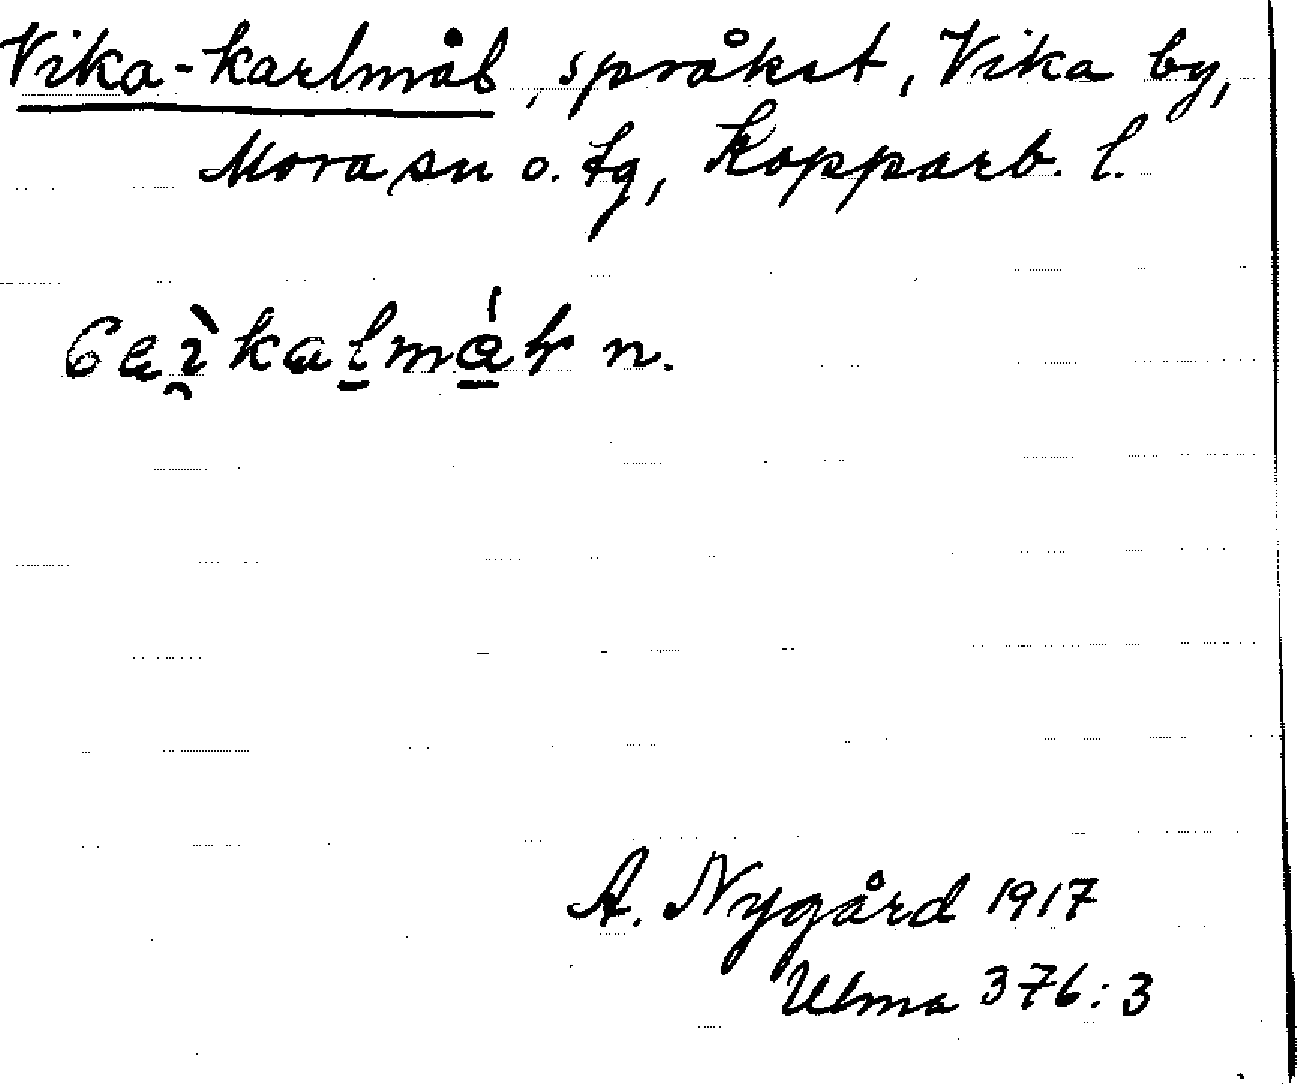 Vika-karlmål, språket, Vika by,
Mora sn o. tg, Kopparb. l.
n.
A. Nygård 1917
Ulma 376:3